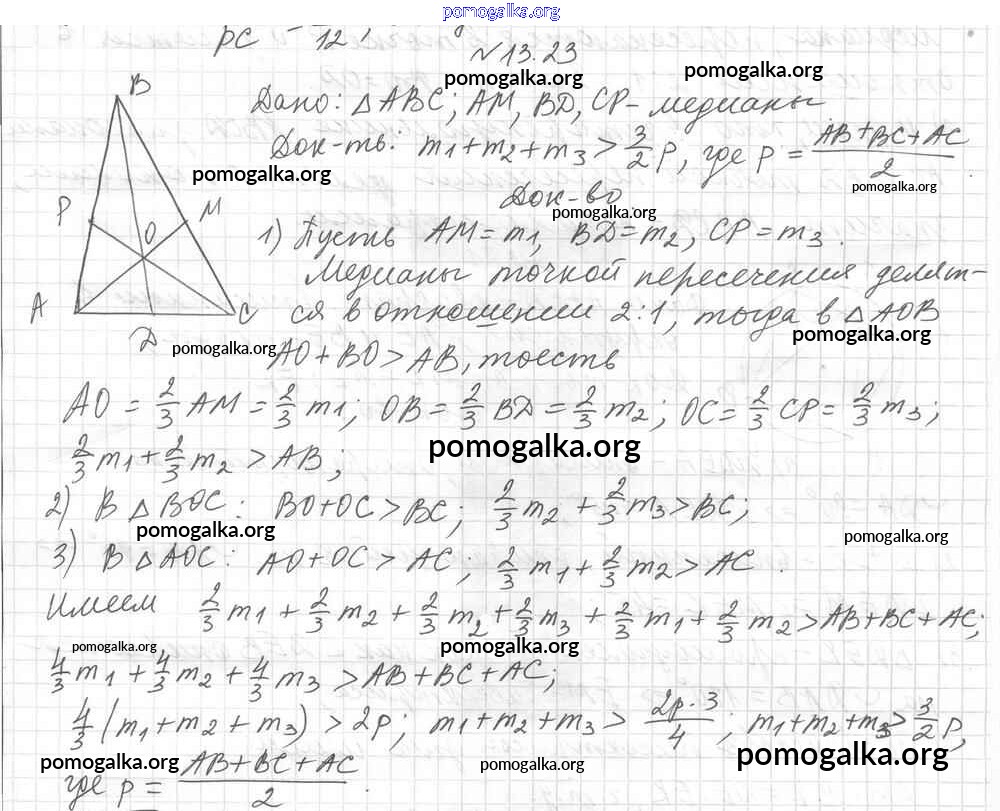 pomogalka.org
PC - 12
№13.23
pomogalka.org pomogalka.org
B
Дано: △ABC; AM, BD, CP - медианы
Док-ть: m1 + m2 + m3 > 3/2 p, где p = (AB + BC + AC)/2
pomogalka.org pomogalka.org
Док-во
pomogalka.org
P M O
1) Пусть AM = m1, BD = m2, CP = m3.
Медианы точкой пересечения делят-
A C
ся в отношении 2:1, тогда в △AOB
pomogalka.org
D
pomogalka.org
AO + BO > AB, тоесть
AO = 2/3 AM = 2/3 m1; OB = 2/3 BD = 2/3 m2; OC = 2/3 CP = 2/3 m3;
pomogalka.org
2/3 m1 + 2/3 m2 > AB;
2) В △BOC: BO + OC > BC; 2/3 m2 + 2/3 m3 > BC;
pomogalka.org pomogalka.org
3) В △AOC: AO + OC > AC; 2/3 m1 + 2/3 m2 > AC.
Имеем 2/3 m1 + 2/3 m2 + 2/3 m2 + 2/3 m3 + 2/3 m1 + 2/3 m2 > AB + BC + AC;
pomogalka.org pomogalka.org
4/3 m1 + 4/3 m2 + 4/3 m3 > AB + BC + AC;
4/3 (m1 + m2 + m3) > 2p; m1 + m2 + m3 > (2p · 3)/4; m1 + m2 + m3 > 3/2 p,
pomogalka.org pomogalka.org pomogalka.org
где p = (AB + BC + AC)/2.